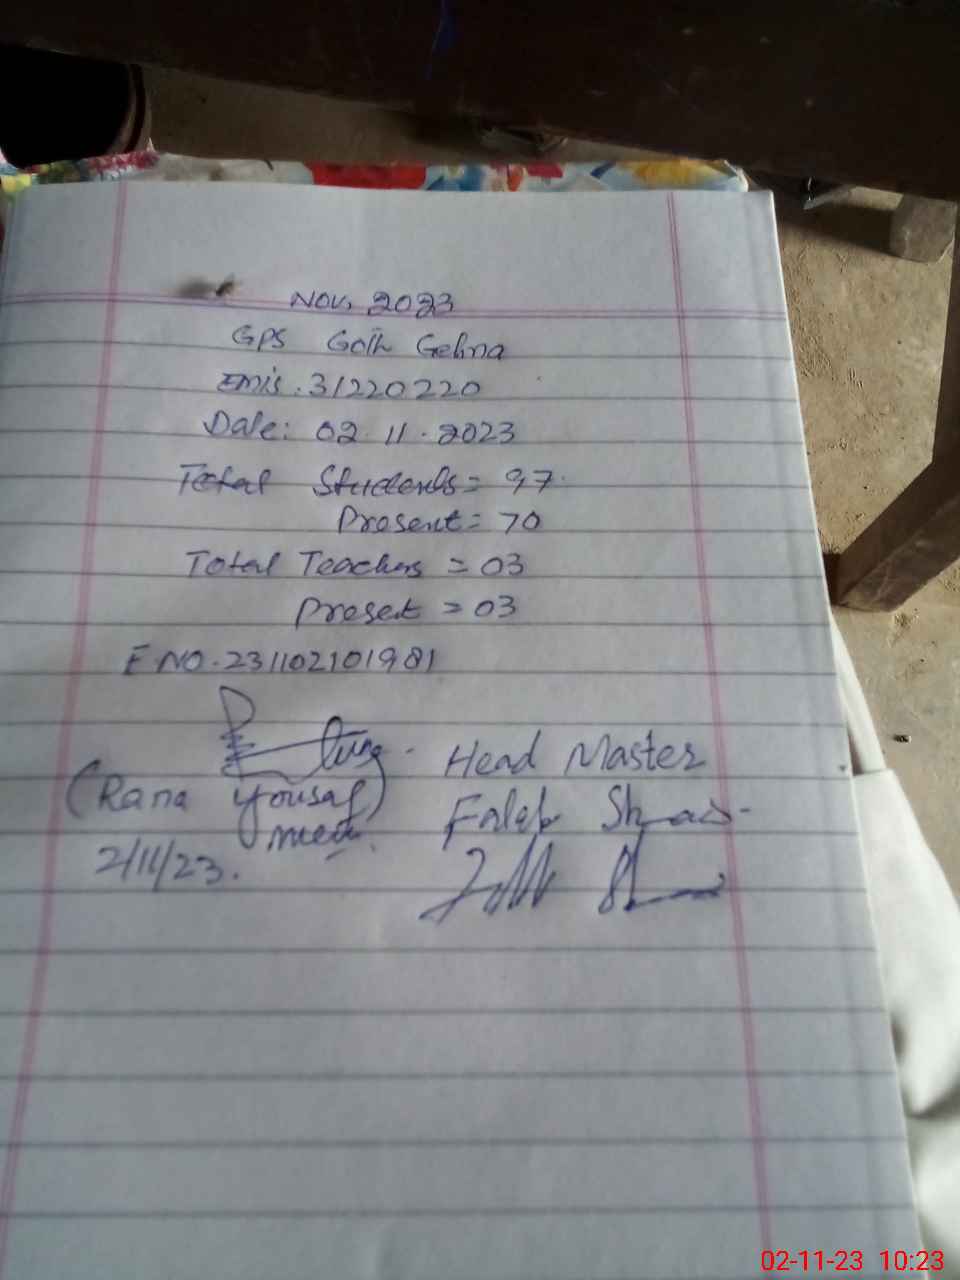 Nov, 2023
GPS Goth Gehna
Emis. 31220220
Date: 02.11.2023
Total Students = 97.
Present = 70
Total Teachers = 03
Present = 03
E NO. 231102101981
Head Master
(Rana Yousaf)
2/11/23.
02-11-23 10:23